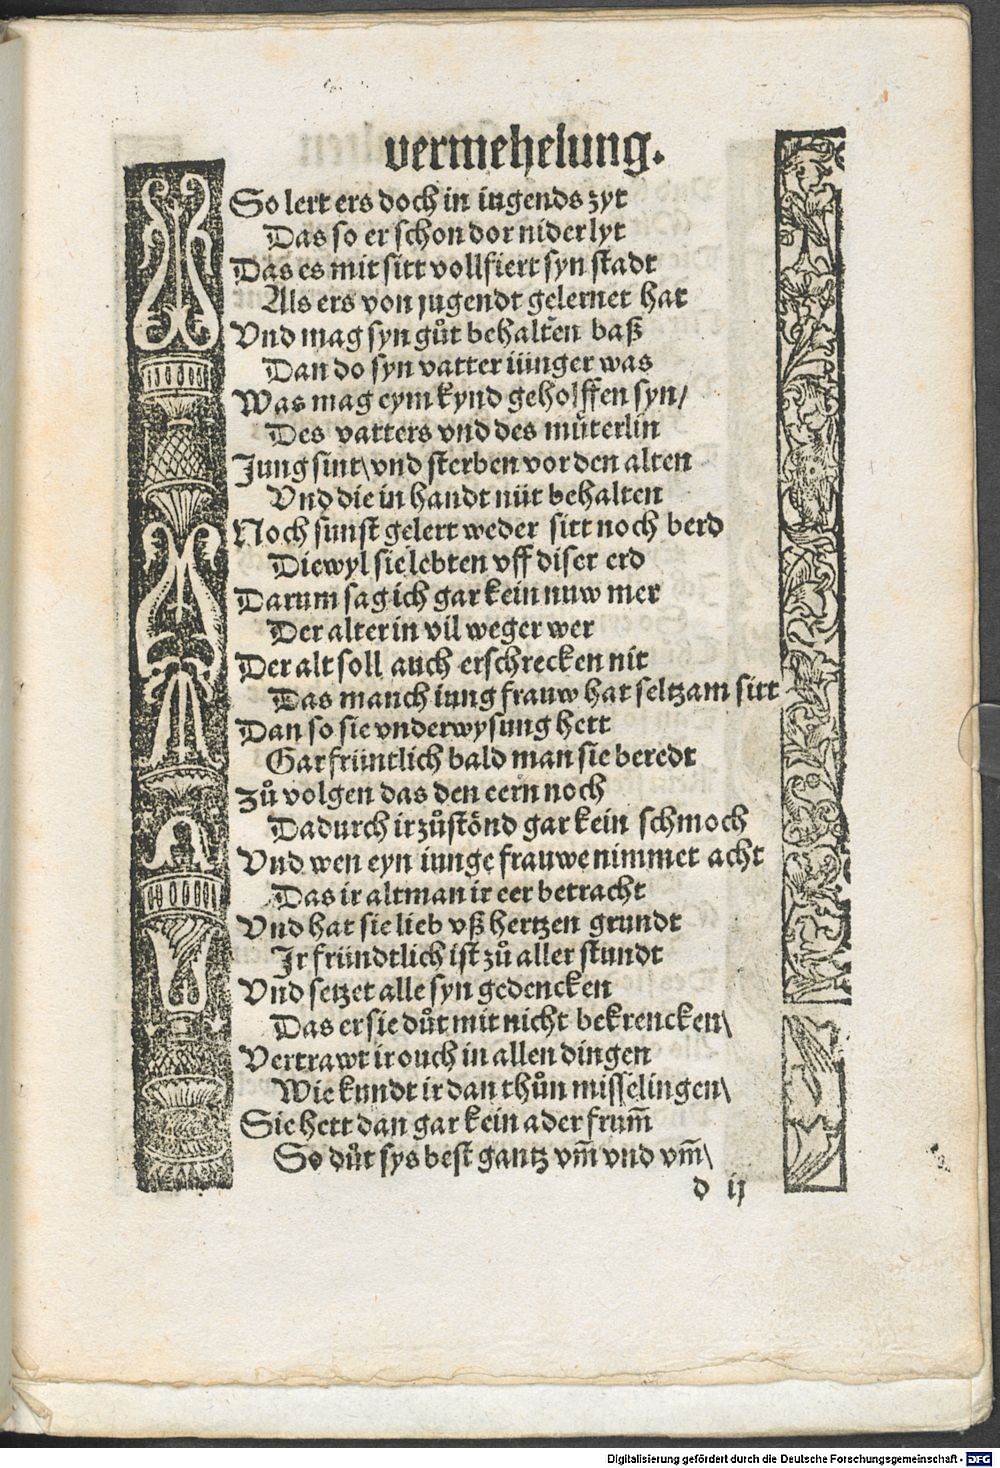 vermehelung.
So lert ers doch in iugends zyt
Das so er schon dor niderlyt
Das es mit sitt vollfiert syn stadt
Als ers von jugendt gelernet hat
Vnd mag syn gůt behalten baß
Dan do syn vatter iünger was
Was mag eym kynd geholffen syn/
Des vatters vnd des müterlin
Jung sint\ vnd sterben vor den alten
Vnd die in handt nüt behalten
Noch sunst gelert weder sitt noch berd
Diewyl sie lebten vff diser erd
Darum sag ich gar kein nuw mer
Der alter in vil weger wer
Der alt soll auch erschrecken nit
Das manch iung frauw hat seltzam sitt
Dan so sie vnderwysung hett
Gar früntlich bald man sie beredt
zů volgen das den eern noch
Dadurch ir zůstönd gar kein schmoch
Vnd wen eyn iunge frauwe nimmet acht
Das ir altman ir eer betracht
Vnd hat sie lieb vß hertzen grundt
Jr fründtlich ist zů aller stundt
Vnd setzet alle syn gedencken
Das er sie důt mit nicht bekrencken\
Vertrawt ir ouch in allen dingen
Wie kundt ir dan thůn misselingen\
Sie hett dan gar kein ader frum̄
So důt sys best gantz vm̄ vnd vm̄\
d ij
Digitalisierung gefördert durch die Deutsche Forschungsgemeinschaft - DFG